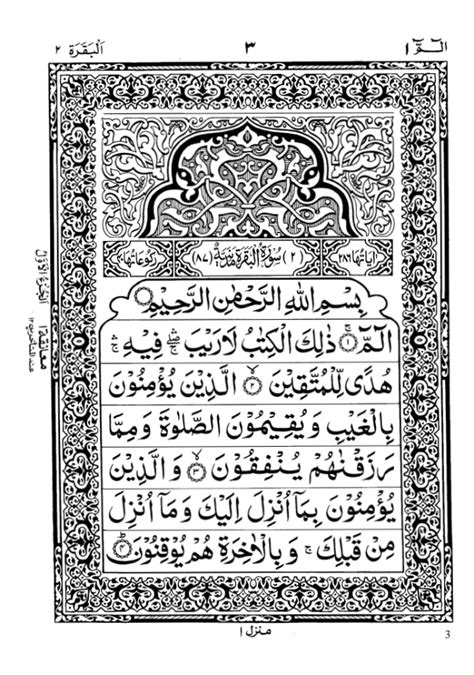 الٓمّٓ ١
٣
اَلْبَقَرَة ٢
اٰيَاتُهَا ٢٨٦
(٢) سُوْرَةُ الْبَقَرَةِ مَدَنِيَّةٌ (٨٧)
رُكُوْعَاتُهَا ٤٠
بِسْمِ اللهِ الرَّحْمٰنِ الرَّحِيْمِ
الٓمّٓ ۚ ١ ذٰلِكَ الْكِتٰبُ لَا رَيْبَ ۛ فِيْهِ ۛ
هُدًى لِّلْمُتَّقِيْنَ ٢ الَّذِيْنَ يُؤْمِنُوْنَ
بِالْغَيْبِ وَيُقِيْمُوْنَ الصَّلٰوةَ وَمِمَّا
رَزَقْنٰهُمْ يُنْفِقُوْنَ ٣ وَالَّذِيْنَ
يُؤْمِنُوْنَ بِمَآ اُنْزِلَ اِلَيْكَ وَمَآ اُنْزِلَ
مِنْ قَبْلِكَ ۚ وَبِالْاٰخِرَةِ هُمْ يُوْقِنُوْنَ ٤
الجزء الاول
معانقة ١
عند المتأخرين ١٢
منزل ١
3